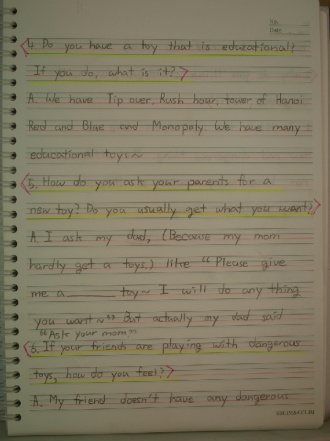 No.
Date
4. Do you have a toy that is educational?
If you do, what is it?
A. We have Tip over, Rush hour, tower of Hanoi
Red and Blue and Monopoly. We have many
educational toys~
5. How do you ask your parents for a
new toy? Do you usually get what you want?
A. I ask my dad, (Because my mom
hardly get a toys.) like "Please give
me a______ toy~ I will do any thing
you want~" But actually my dad said
"Ask your mom"
6. If your friends are playing with dangerous
toys, how do you feel?
A. My friend doesn't have any dangerous